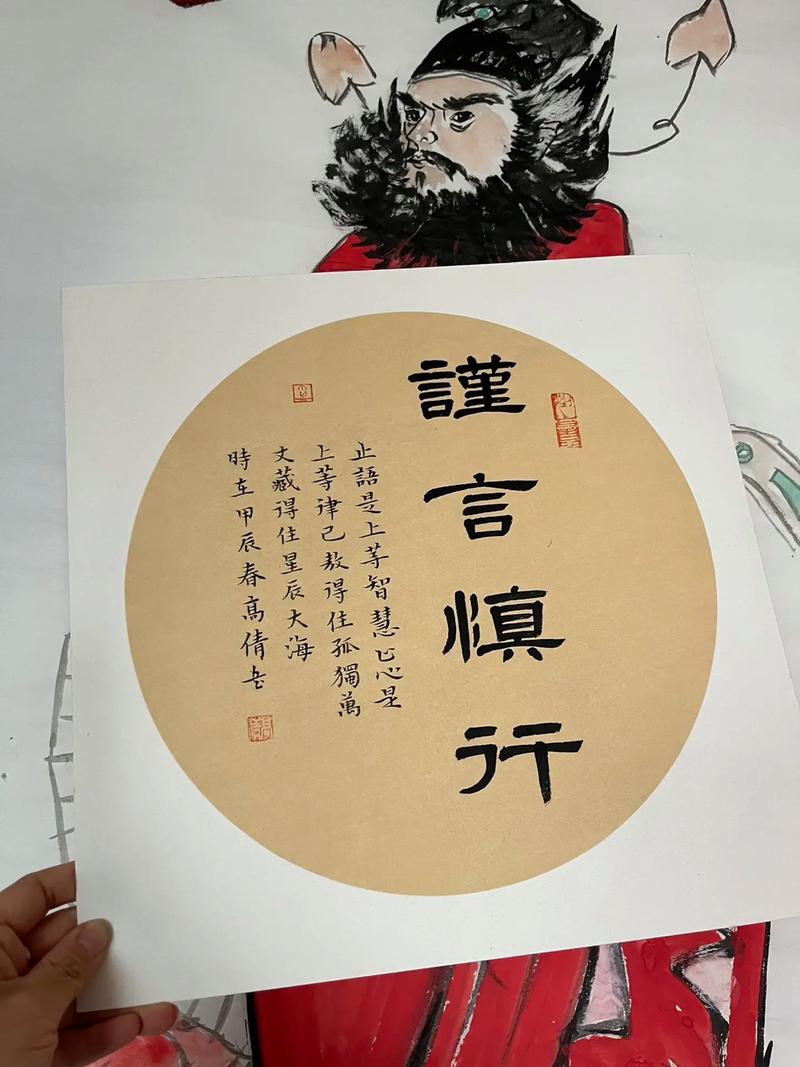 謹言慎行
止語是上等智慧止心是
上等律己敖得住孤獨萬
丈藏得住星辰大海
時在甲辰春高倩書